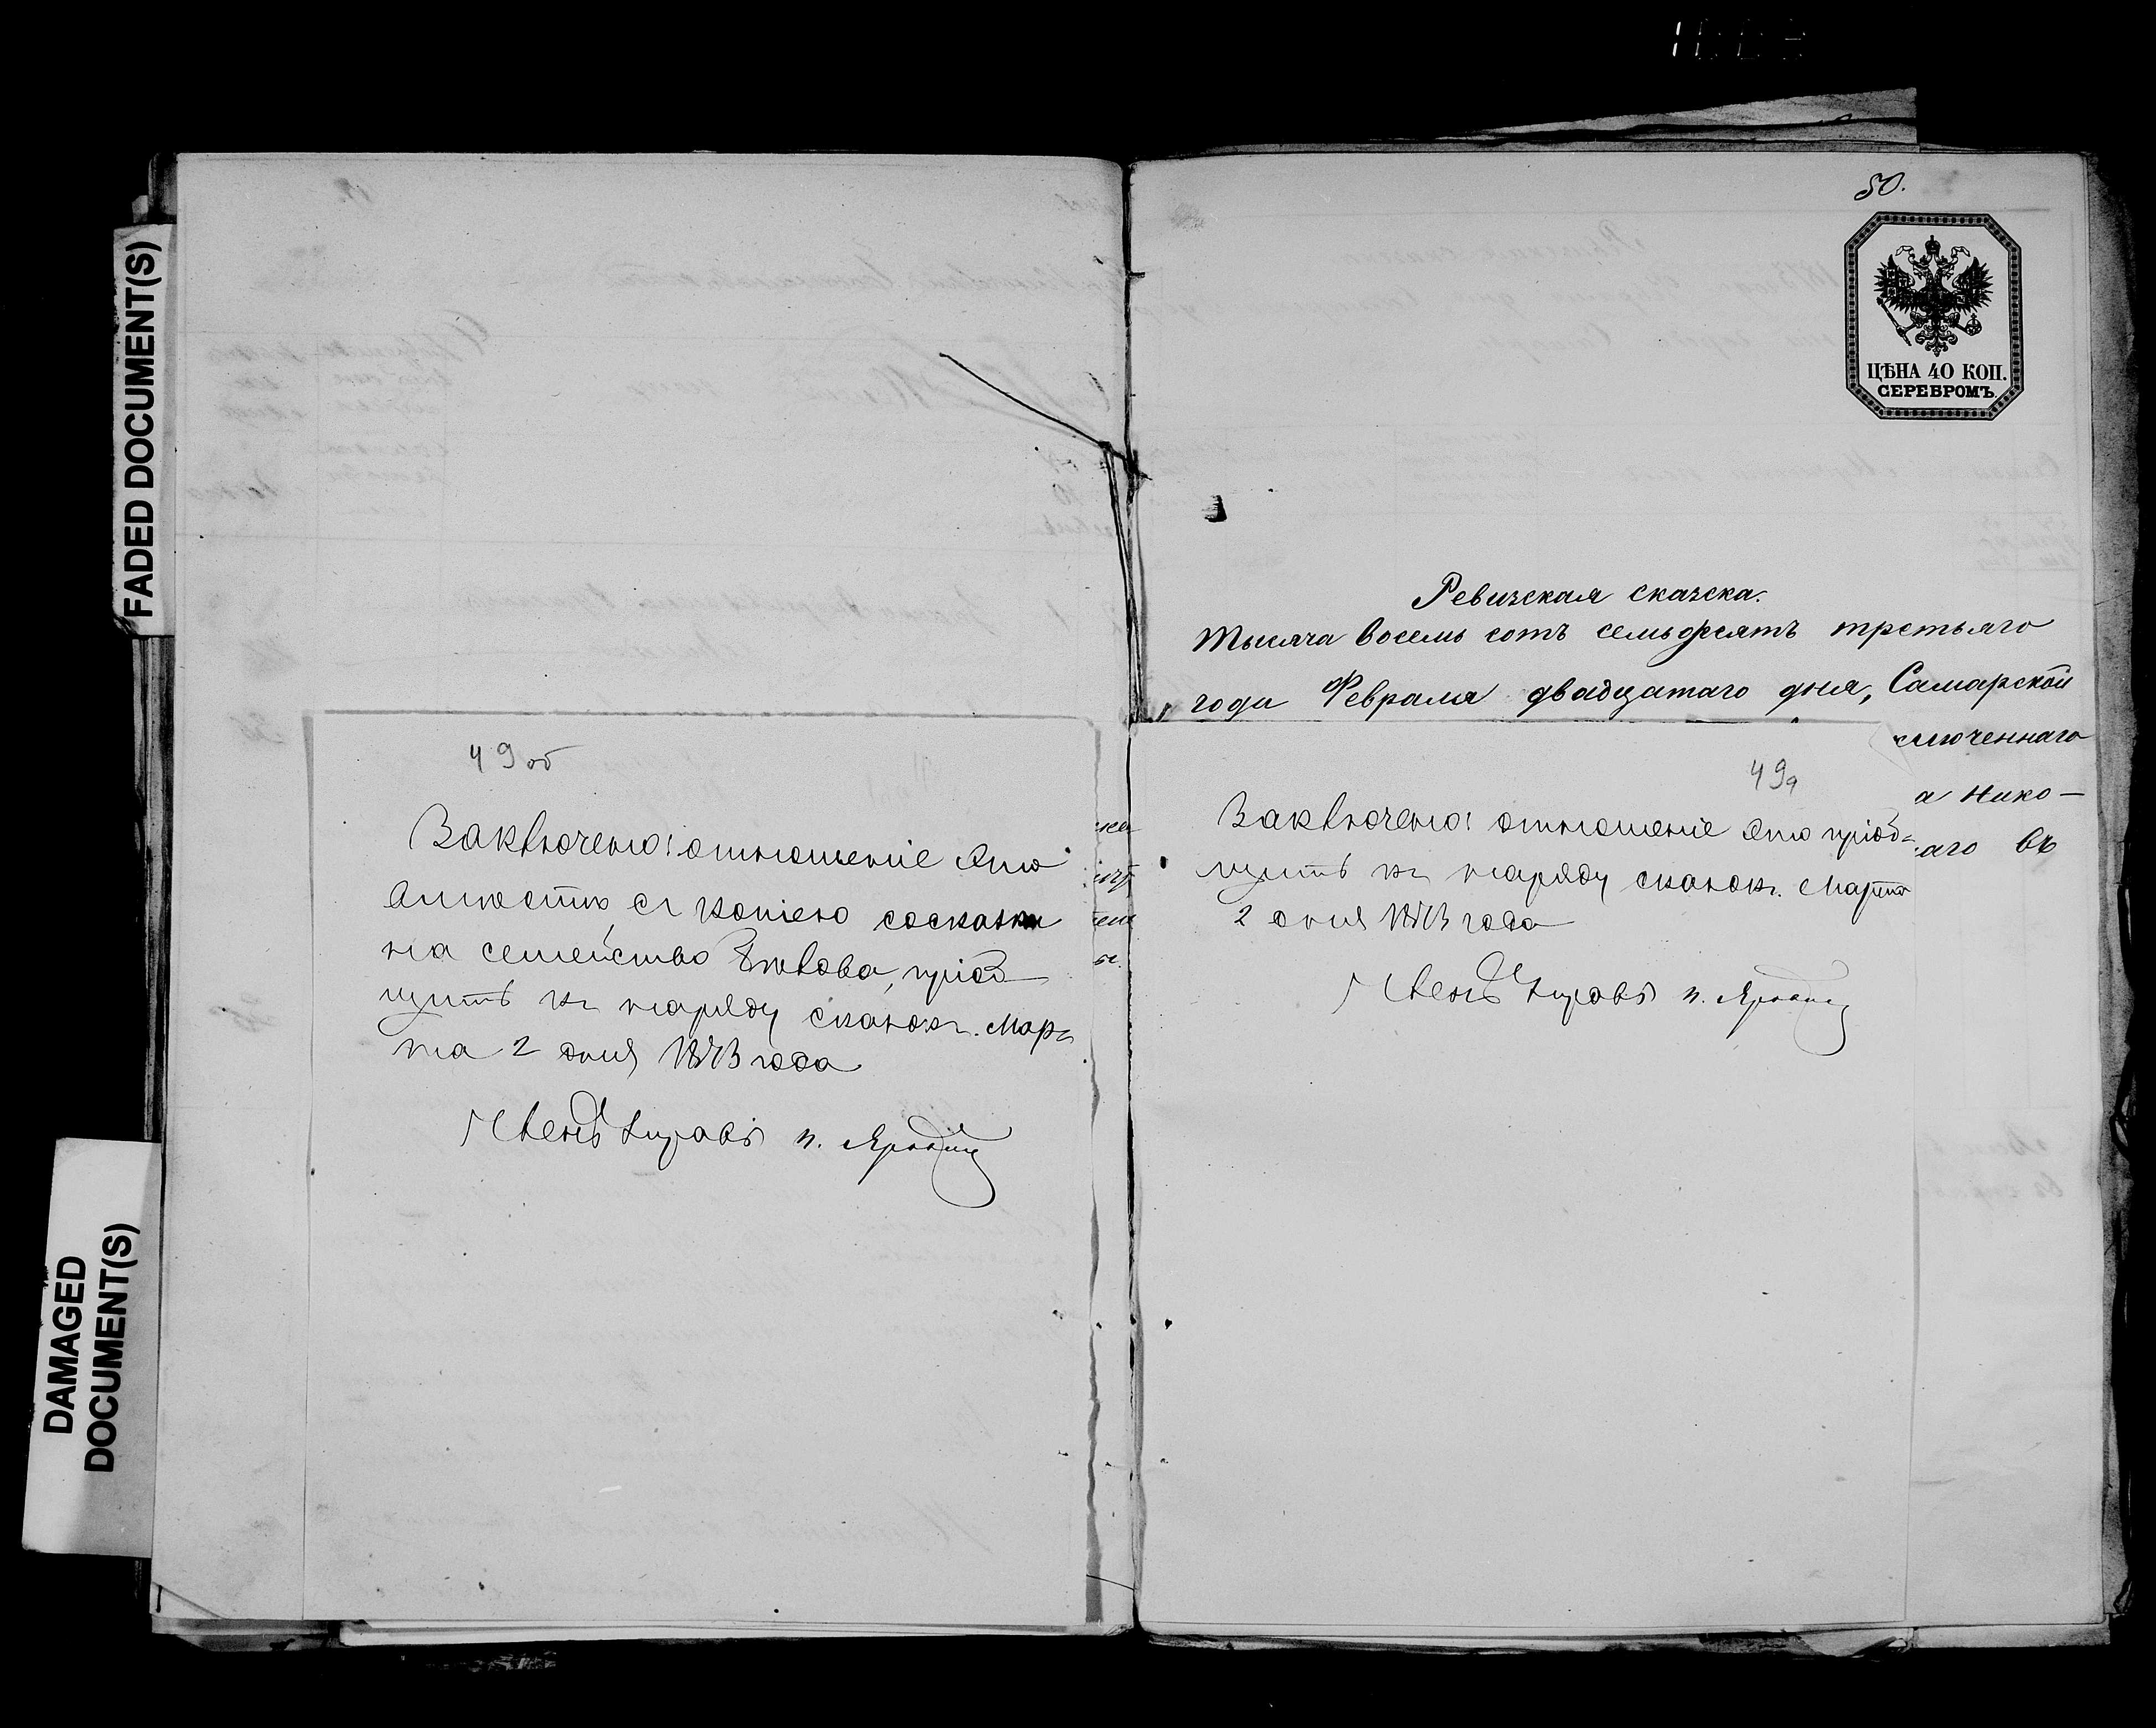 FADED DOCUMENT(S)
DAMAGED
DOCUMENT(S)
49 об
Заключено: отношеніе это
вмѣстѣ съ копіею со сказки
на семейство пріоб
щить къ наряду сказокъ. Мар
та 2 дня 1873 года
Членъ Управы
50.
ЦѢНА 40 КОП.
СЕРЕБРОМЪ
Ревизская сказка.
Тысяча восемь сотъ семьдесятъ третьяго
года Февраля двадцатаго дня, Самарской
ключеннаго
а Нико-
аго въ
49а
Заключено: отношеніе это пріоб-
щить къ наряду сказокъ. Марта
2 дня 1873 года
Членъ Управы